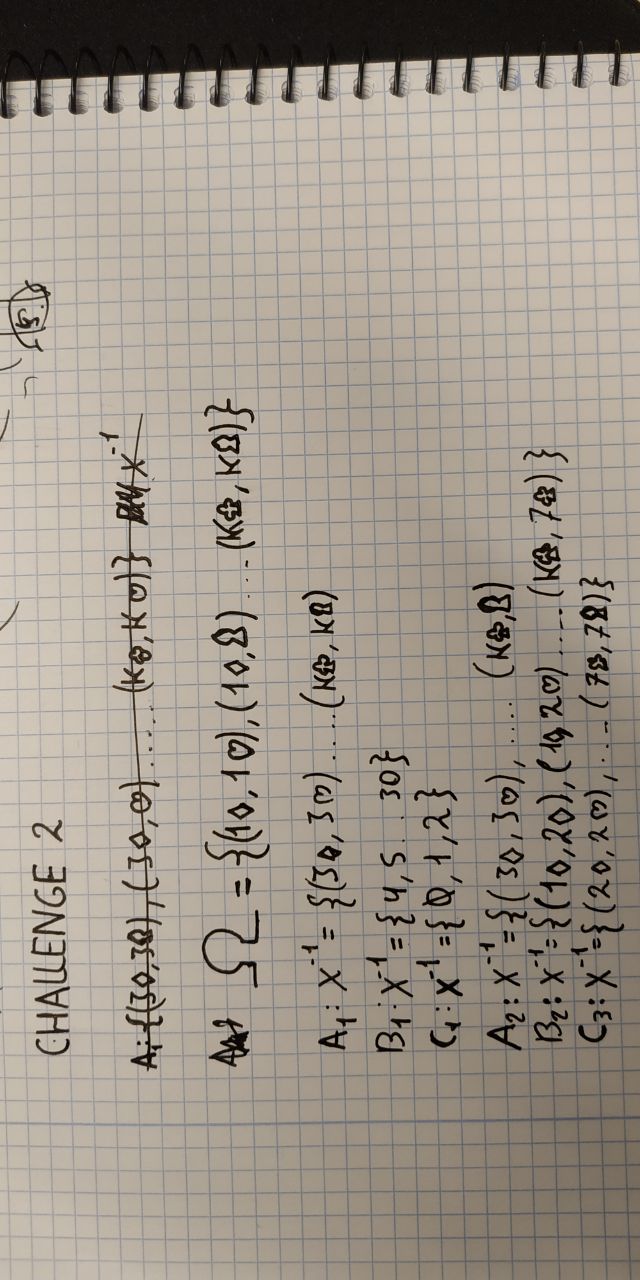 CHALLENGE 2
A₁: {(3◊,3♤),(3◊,♡).....(K♧,K♡)} X⁻¹
Ω = {(1◊,1♡),(1◊,♤).... (K♧,K♤)}
A₁: X⁻¹ = {(3◊,3♡).....(K♧,K♤)
B₁: X⁻¹ = {4,5...30}
C₁: X⁻¹ = {0,1,2}
A₂: X⁻¹ = {(3◊,3♡),....(K♧,♤)
B₂: X⁻¹ = {(1◊,2◊),(1◊,2♡).....(K♧,7♧)}
C₃: X⁻¹ = {(2◊,2♡),....(7♧,7♤)}